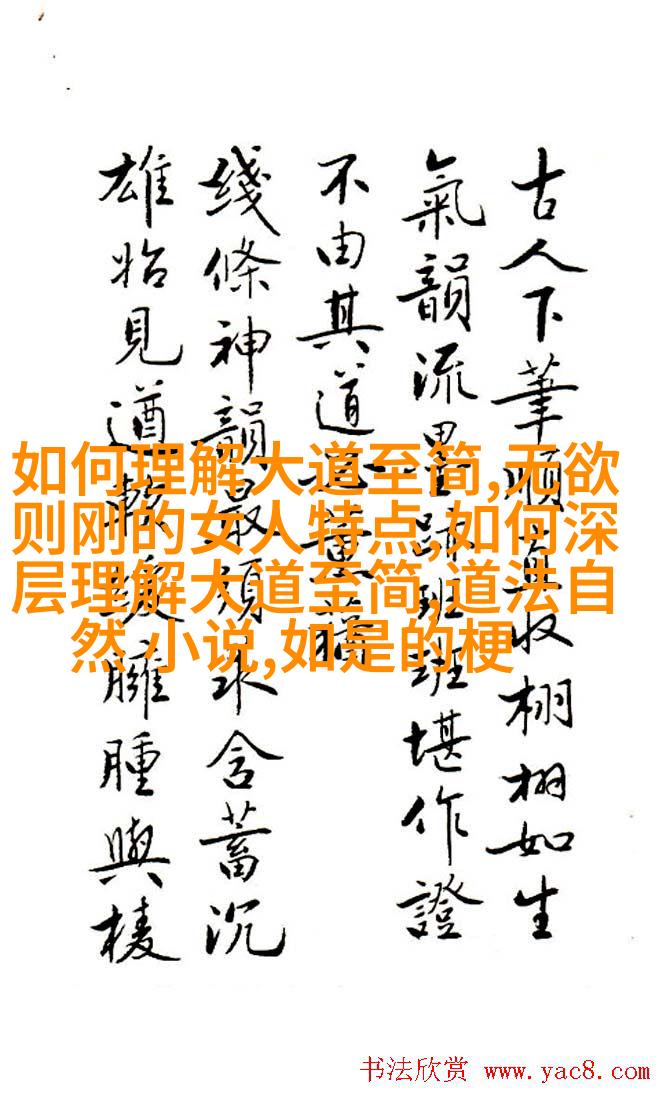 古人下筆順收栩栩如生
氣韻流墨跡班班堪作證
不由其道
綫條神韻最須求含蓄沉
雄始見遒臃腫與棱
如何理解大道至简,无欲
则刚的女人特点,如何深
层理解大道至简,道法自
然,小说,如是的梗
书法欣赏 www.yac8.com